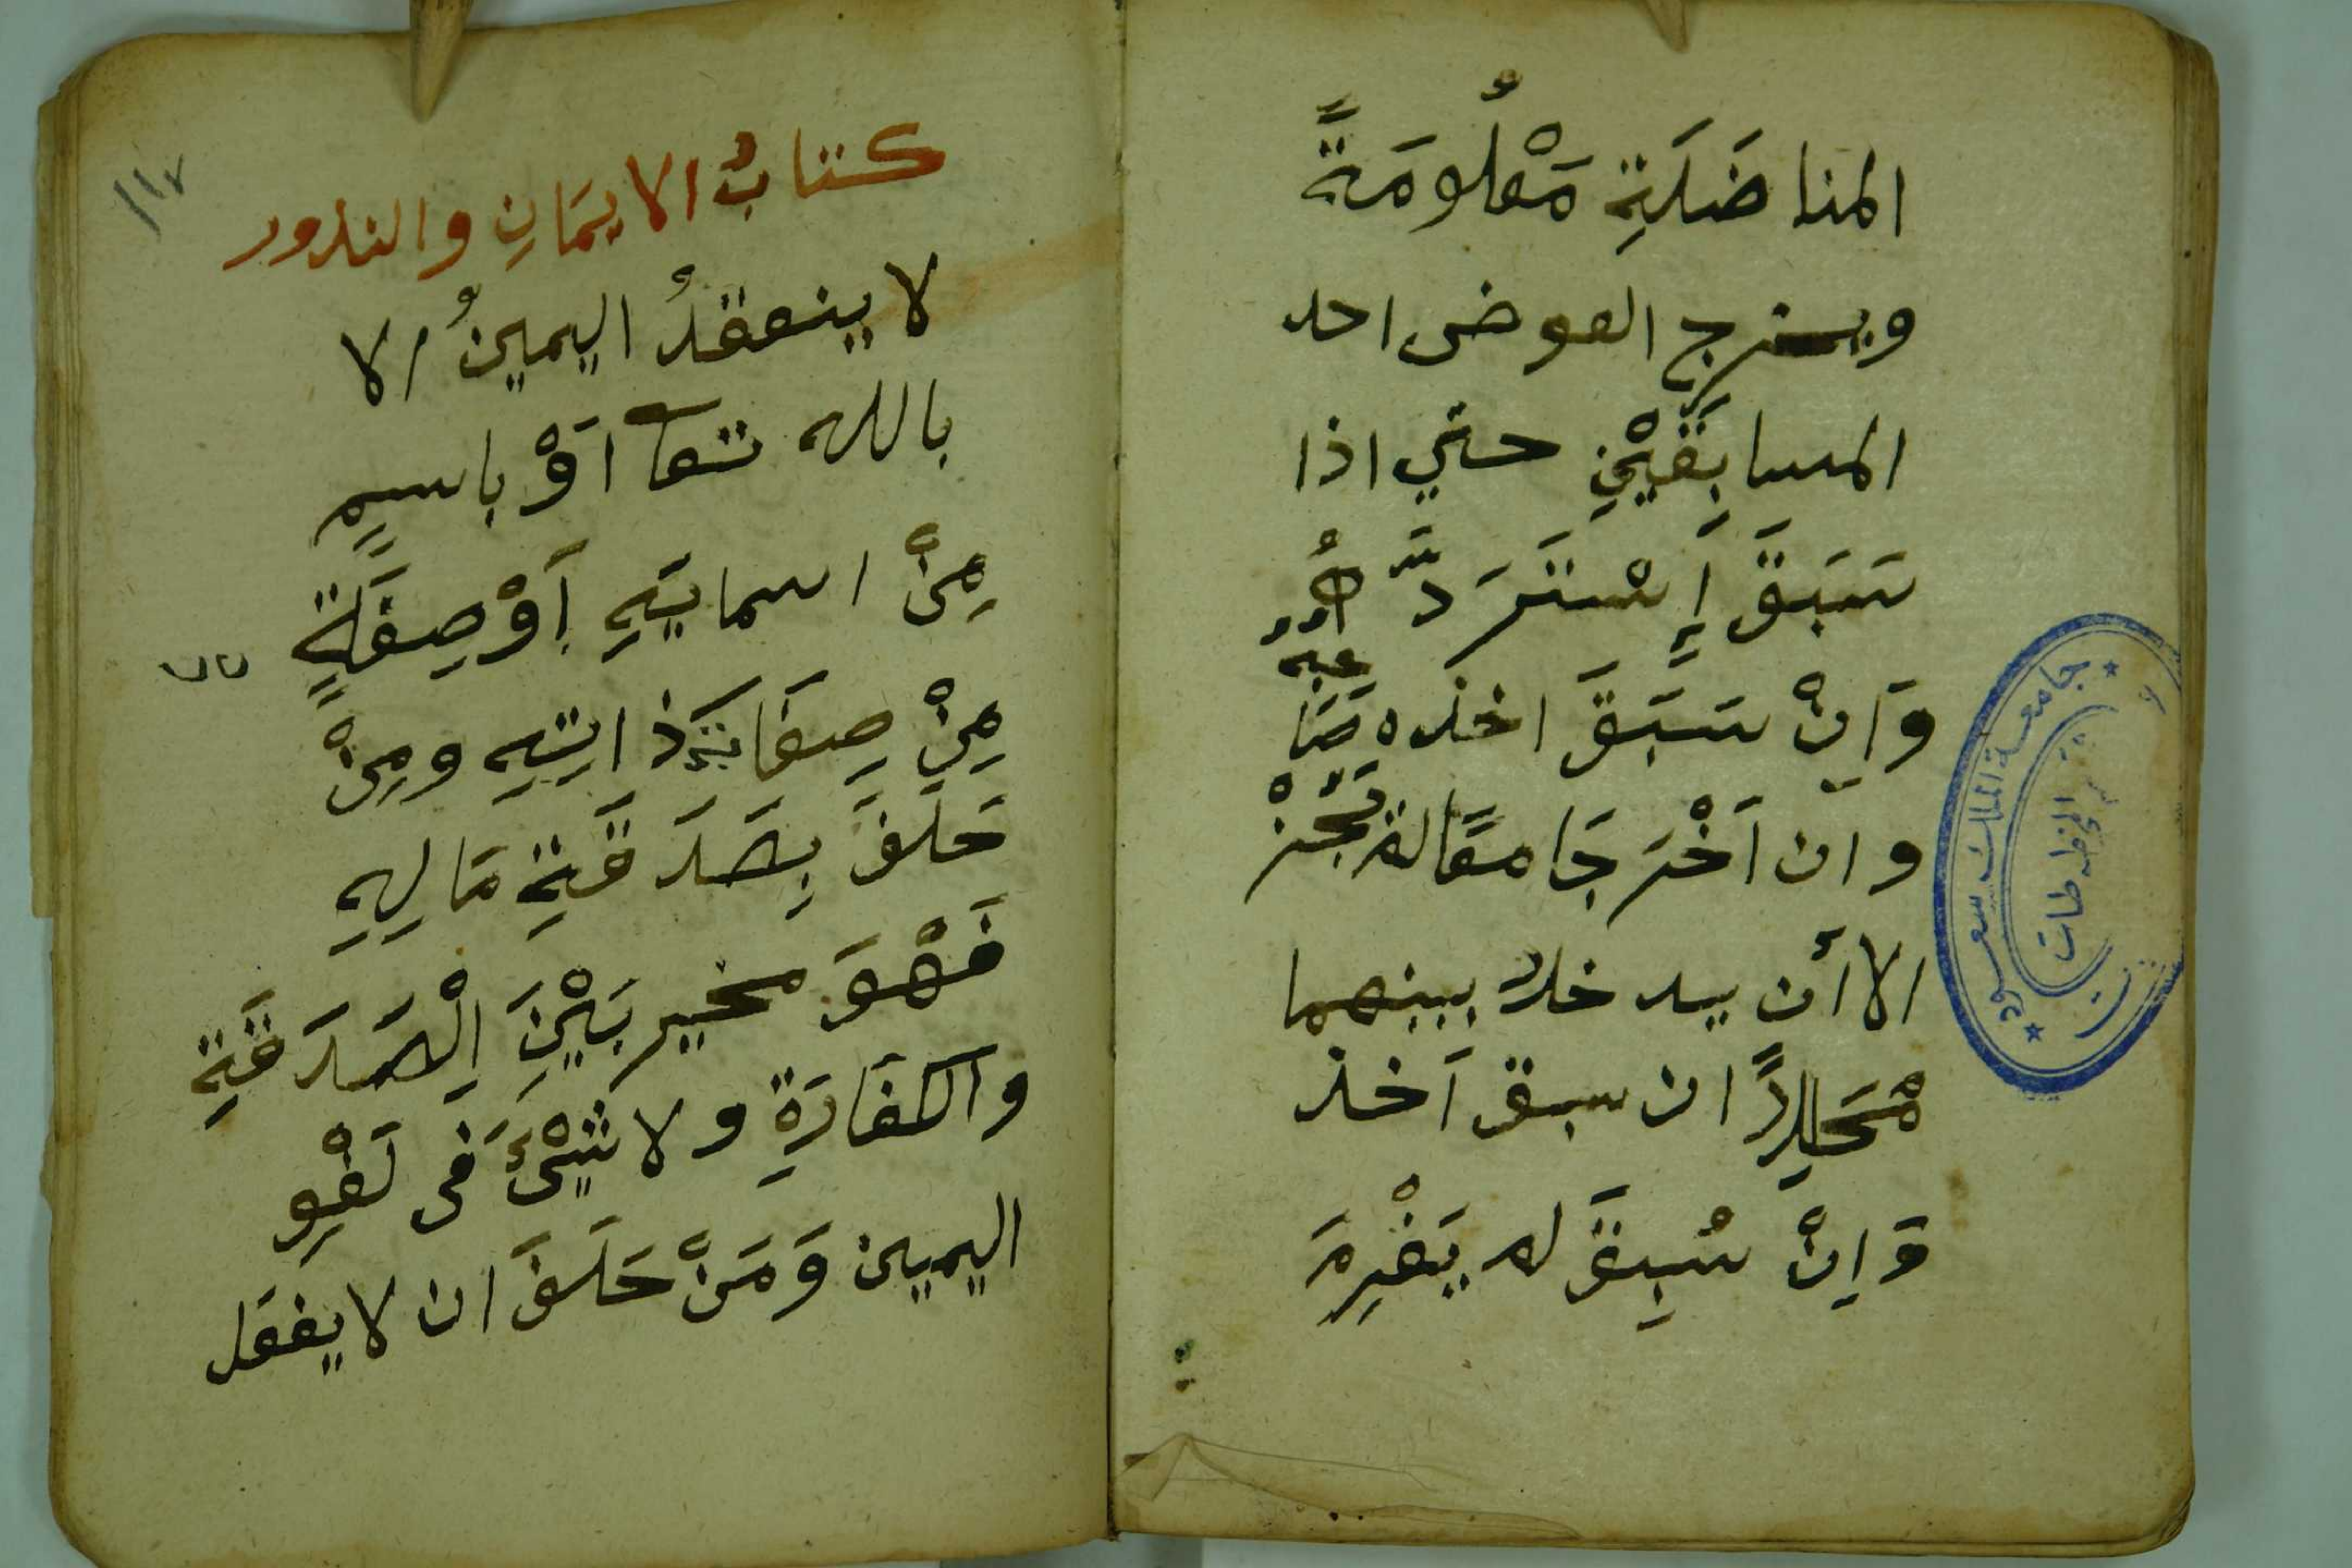 المناضَلَةِ مَعْلُومَةً
ويخرج العوض احد
المسابِقَيْنِ حتي اذا
سَبَقَ إِسْتَرَدَّهُ
وَاِنْ سَبَقَ اخذه صَاحبه
وان اَخْرَجَا معًا لم يَجُزْ
الا أن يدخلا بينهما
مُحَلِلاً ان سبق اَخذ
وَاِنْ سُبِقَ لم يَغْرِمَ
جامعة الملك سعود
المخطوطات
١١٧
كتابُ الايمَانِ والنذور
لا ينعقدُ اليمينُ الا
بالله تعا اَوْ باسمٍ
مِنْ اسمايَهِ اَوْ صِفَةٍ
مِنْ صِفَاتِ ذاتِهِ ومِنْ
حَلَفَ بِصَدَقَةِ مَالِهِ
فَهْوَ مخير بَيْنَ الْصَدَقَةِ
والكفَارَةِ ولا شَيْئَ فى لَغْوِ
اليمين وَمَنْ حَلَفَ ان لا يفعَل